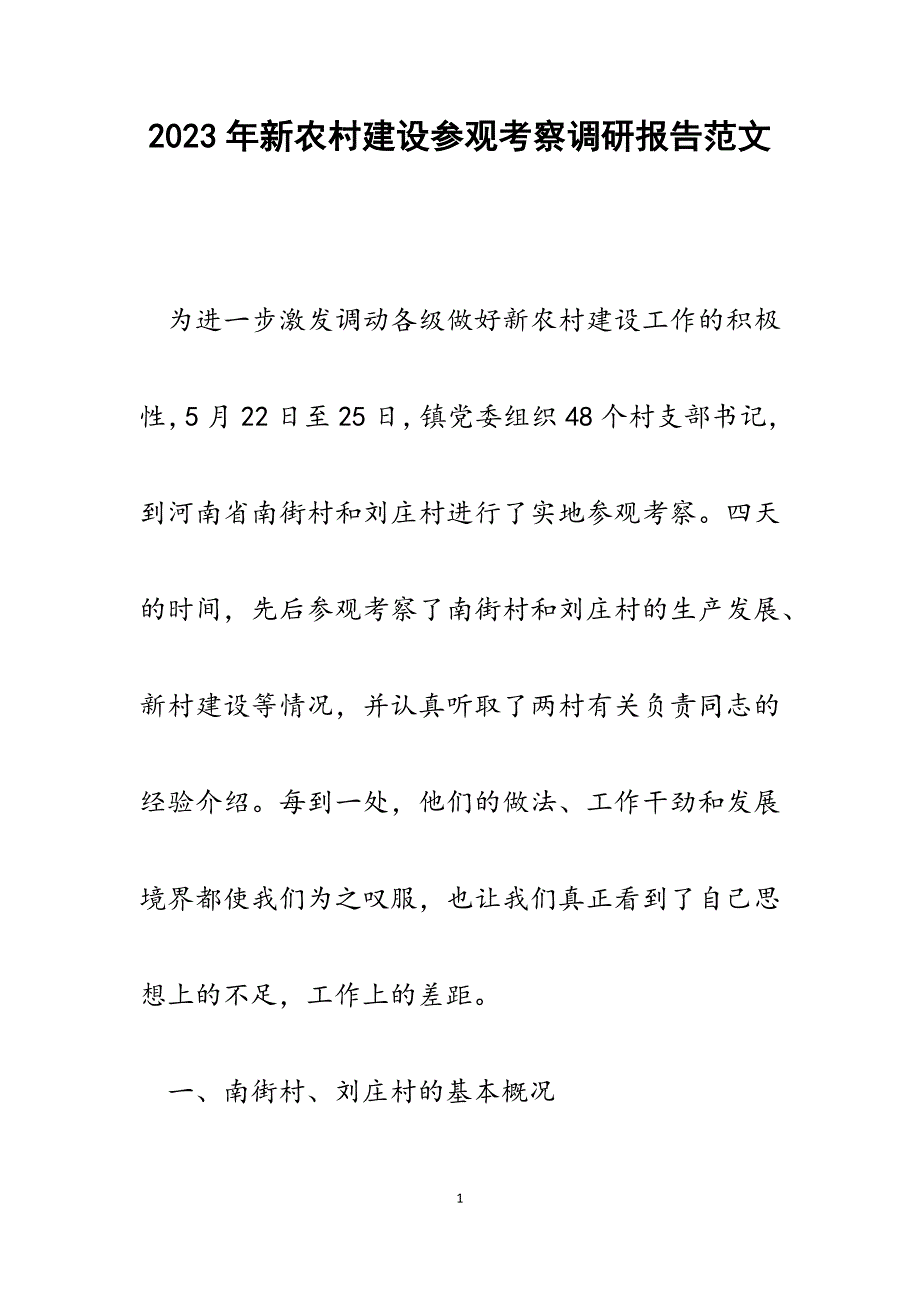 2023年新农村建设参观考察调研报告范文
为进一步激发调动各级做好新农村建设工作的积极
性,5月22日至25日,镇党委组织48个村支部书记,
到河南省南街村和刘庄村进行了实地参观考察。四天
的时间，先后参观考察了南街村和刘庄村的生产发展、
新村建设等情况，并认真听取了两村有关负责同志的
经验介绍。每到一处，他们的做法、工作干劲和发展
境界都使我们为之叹服，也让我们真正看到了自己思
想上的不足，工作上的差距。
一、南街村、刘庄村的基本概况
1